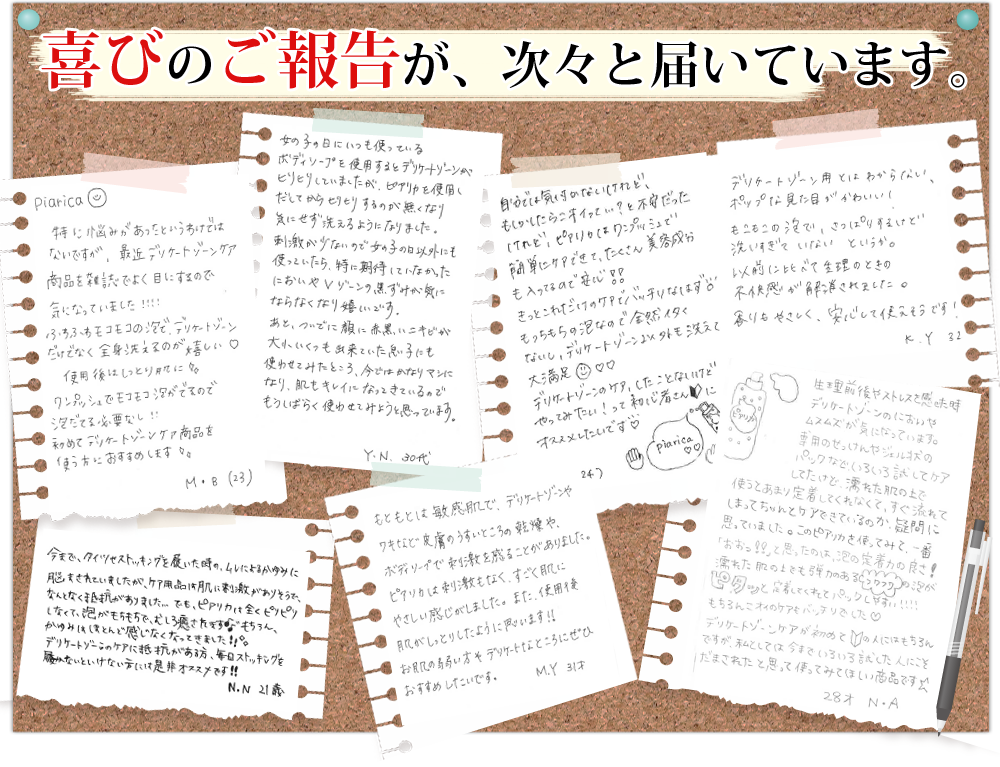 喜びのご報告が、次々と届いています。
piarica
特に悩みがあったというわけでは
ないですが、最近デリケートゾーンケア
商品を雑誌でよく目にするので
気になっていました!!!!
ふわふわモコモコの泡で、デリケートゾーン
だけでなく全身洗えるのが嬉しい♡
使用後はしっとり肌に
ワンプッシュでモコモコ泡がでるので
泡だてる必要なし!!
初めてデリケートゾーンケア商品を
使う方におすすめします
M・B (23)
女の子の日にいつも使っている
ボディソープを使用するとデリケートゾーンが
ヒリヒリしていましたが、ピアリカを使用し
だしてからヒリヒリするのが無くなり
気にせず洗えるようになりました。
刺激が少ないので女の子の日以外にも
使っていたら、特に期待していなかった
においやVゾーンの黒ずみが気に
ならなくなり嬉しいです。
あと、ついでに顔に赤黒いニキビが
大小いくつも出来ていた息子にも
使わせてみたところ、今ではかなりマシに
なり、肌もキレイになってきているので
もうしばらく使わせてみようと思っています。
Y.N. 30代
自分では気付かないけれど、
もしかしたらニオイってい?と不安だった
けれど、ピアリカはワンプッシュで
簡単にケアできて、たくさん美容成分
も入ってるので安心!!
きっとこれだけのケアでバッチリなはず♡
もっちもちの泡なので全然イタく
ないし、デリケートゾーン以外も洗えて
大満足♡♡
デリケートゾーンのケア、したことないけど
やってみたい!って初心者さんに
オススメしたいです♡
piarica
24)
デリケートゾーン用とはわからない、
ポップな見た目がかわいい!
もこもこの泡で、さっぱりするけど
洗いすぎていない というか。
以前に比べて生理のときの
不快感が解消されました。
香りもやさしく、安心して使えそうです!
K.Y 32
今まで、タイツやストッキングを履いた時の、ムレによるかゆみに
悩まされていましたが、ケア用品は肌に刺激がありそうで、
なんとなく抵抗がありました…でも、ピアリカは全くピリピリ
しなくて、泡がもちもちで、むしろ癒されます♪もちろん、
かゆみはほとんど感じなくなってきました!!
デリケートゾーンのケアに抵抗がある方、毎日ストッキングを
履かないといけない方には是非オススメです!!
N.N 21歳
もともとは敏感肌で、デリケートゾーンや
ワキなど皮膚のうすいところの乾燥や、
ボディソープで刺激を感ることがありました。
ピアリカは刺激もなく、すごく肌に
やさしい感じがしました。また、使用後
肌がしっとりしたように思います!!
お肌の弱い方やデリケートなところにぜひ
おすすめしたいです。
M.Y 31才
ピアリカ
生理前後やストレスを感じた時
デリケートゾーンのにおいや
ムズムズが気になっています。
専用のせっけんやジェル状の
パックなどいろいろ試してケア
してたけど、濡れた肌の上で
使うとあまり定着してくれなくて、すぐ流れて
しまってちゃんとケアできているのか疑問に
思っていました。このピアリカを使ってみて、一番
「おおっ!!」と思ったのは、泡の定着力の良さ!
濡れた肌の上でも弾力のあるフワフワの泡が
ピタッと定着してくれとパックしやすい!!!!
もちろんニオイのケアもバッチリでした♡
デリケートゾーンケアが初めての人にはもちろん
ですが、私としては今までいろいろ試した人にこそ
だまされたと思って使ってみてほしい商品です☆
28才 N・A